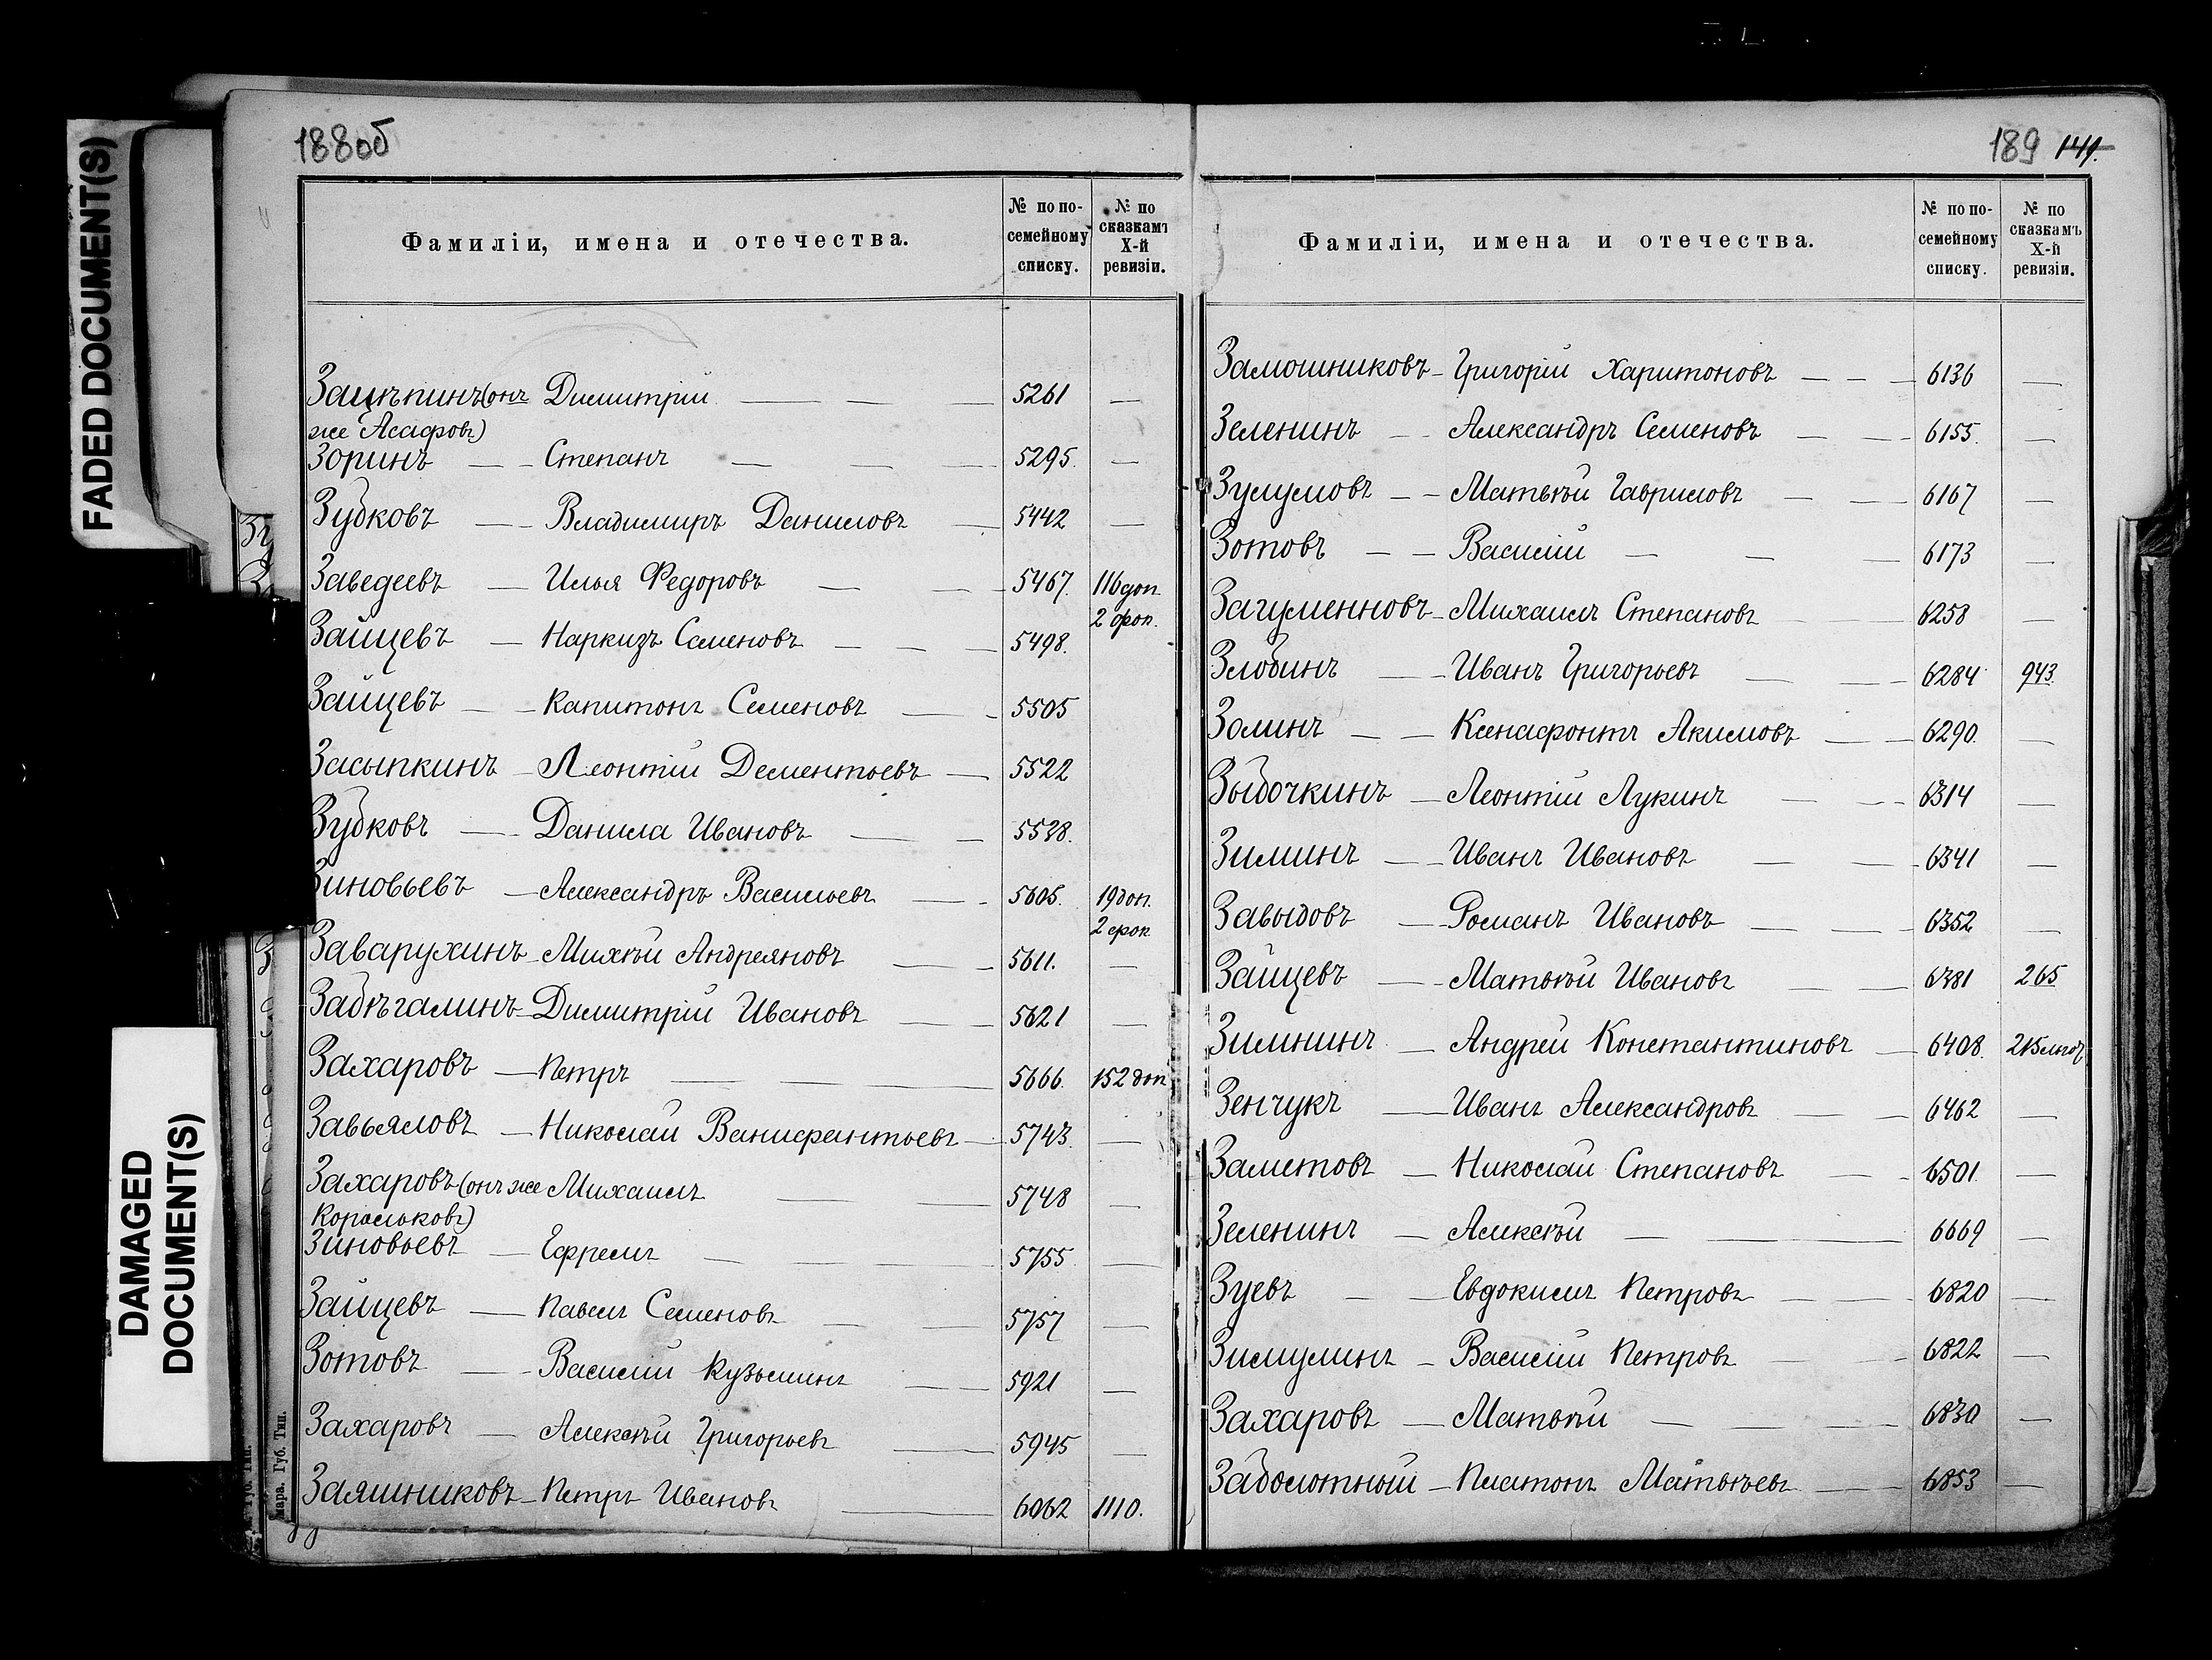 FADED DOCUMENT(S)
DAMAGED
DOCUMENT(S)
188об
Фамиліи, имена и отечества.
№ по по-
семейному
списку.
№ по
сказкамъ
X-й
ревизіи.
Зацѣпинъ (онъ Димитрій — — — 5261 —
же Асафовъ)
Зоринъ — — Степанъ — — — 5295. —
Зубковъ — — Владимиръ Даниловъ — 5442 —
Заведеевъ — Илья Федоровъ — — 5467. 116 доп.
2 срок.
Зайцевъ — Наркизъ Семеновъ — — — 5498.
Зайцевъ — — Капитонъ Семеновъ — — 5505
Засыпкинъ — Леонтій Дементьевъ — 5522
Зубковъ — — Данила Ивановъ — — 5528.
Зиновьевъ — Александръ Васильевъ — — 5605. 19 доп.
2 срок
Заварухинъ — Михѣй Андреяновъ — — 5611. —
Забѣгалинъ — Димитрій Ивановъ — — 5621 —
Захаровъ — Петръ — — — 5666. 152 доп
Завьяловъ — Николай Ванифантьевъ — 5743. —
Захаровъ (онъ же Михаилъ — — 5748 —
Корольковъ)
Зиновьевъ — Ефремъ — — — 5755 —
Зайцевъ — Павелъ Семеновъ — — 5757 —
Зотовъ — — Василій Кузьминъ — — 5921 —
Захаровъ — Алексѣй Григорьевъ — 5945 —
Заяшниковъ — Петръ Ивановъ — 6062 1110.
мара. Губ. Тип.
189 141.
Фамиліи, имена и отечества.
№ по по-
семейному
списку.
№ по
сказкамъ
X-й
ревизіи.
Замошниковъ — Григорій Харитоновъ — — — 6136 —
Зеленинъ — — Александръ Семеновъ — — — 6155. —
Зулумовъ — — Матвѣй Гавриловъ — — 6167 —
Зотовъ — — Василій — — — 6173 —
Загуменновъ — Михаилъ Степановъ — 6258 —
Злобинъ — — Иванъ Григорьевъ — — — 6284 943.
Золинъ — — Ксенафонтъ Акимовъ — — 6290. —
Зыбочкинъ — Леонтій Лукинъ — — — 6314 —
Зиминъ — — Иванъ Ивановъ — — 6341 —
Завыдовъ — Романъ Ивановъ — — 6352 —
Зайцевъ — — Матвѣй Ивановъ — — 6381 265
Зимнинъ — Андрей Константиновъ — 6408.
Зенчукъ — Иванъ Александровъ — — 6462 —
Заметовъ — Николай Степановъ — — 6501. —
Зеленинъ — Алексѣй — — 6669 —
Зуевъ — — Евдокимъ Петровъ — — 6820 —
Зимулинъ — Василій Петровъ — — 6822 —
Захаровъ — Матвѣй — — — 6830 —
Заболотный — Платонъ Матвѣевъ — — 6853 —